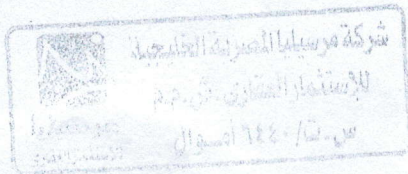 شركة مرسيليا المصرية الخليجية
للإستثمار العقارى ش.م.م
س.ت/ ٢٤٤٠ أموال